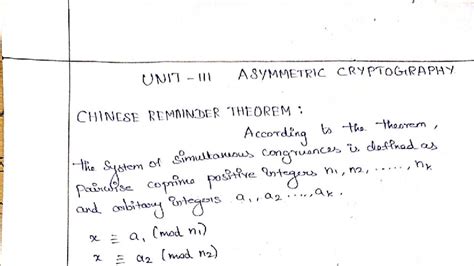 UNIT - III ASYMMETRIC CRYPTOGRAPHY
CHINESE REMAINDER THEOREM :
According to the theorem,
the system of simultaneous congruences is defined as
pairwise coprime positive integers n1, n2, ....., nk
and orbitary integers a1, a2 ...., ak.
x ≡ a1 (mod n1)
x ≡ a2 (mod n2)